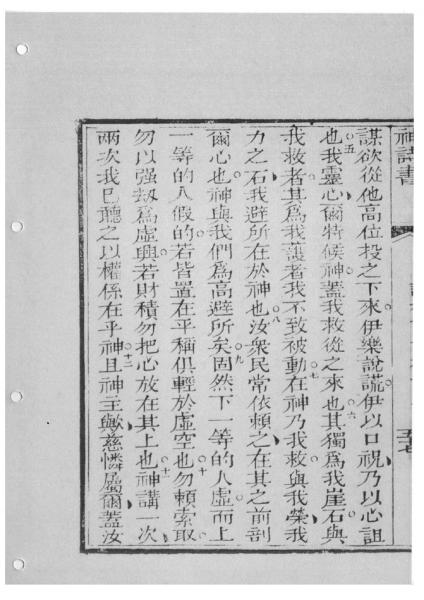 神詩書 五十七
謀欲從他高位投之下來伊樂說謊伊以口視乃以心詛
也五我靈心爾特候神蓋我救從之來也六其獨為我崖石與
我救者其為我護者我不致被動七在神乃我救與我榮我
力之石我避所在於神也八汝眾民常依賴之在其之前剖
爾心也神與我們為高避所矣九固然下一等的人虛而上
一等的人假的若皆置在平稱俱輕於虛空也十勿賴索取
勿以强刼為虛與若財積勿把心放在其上也十一神講一次
兩次我已聽之以權係在乎神十二且神主歟慈憐屬爾蓋汝